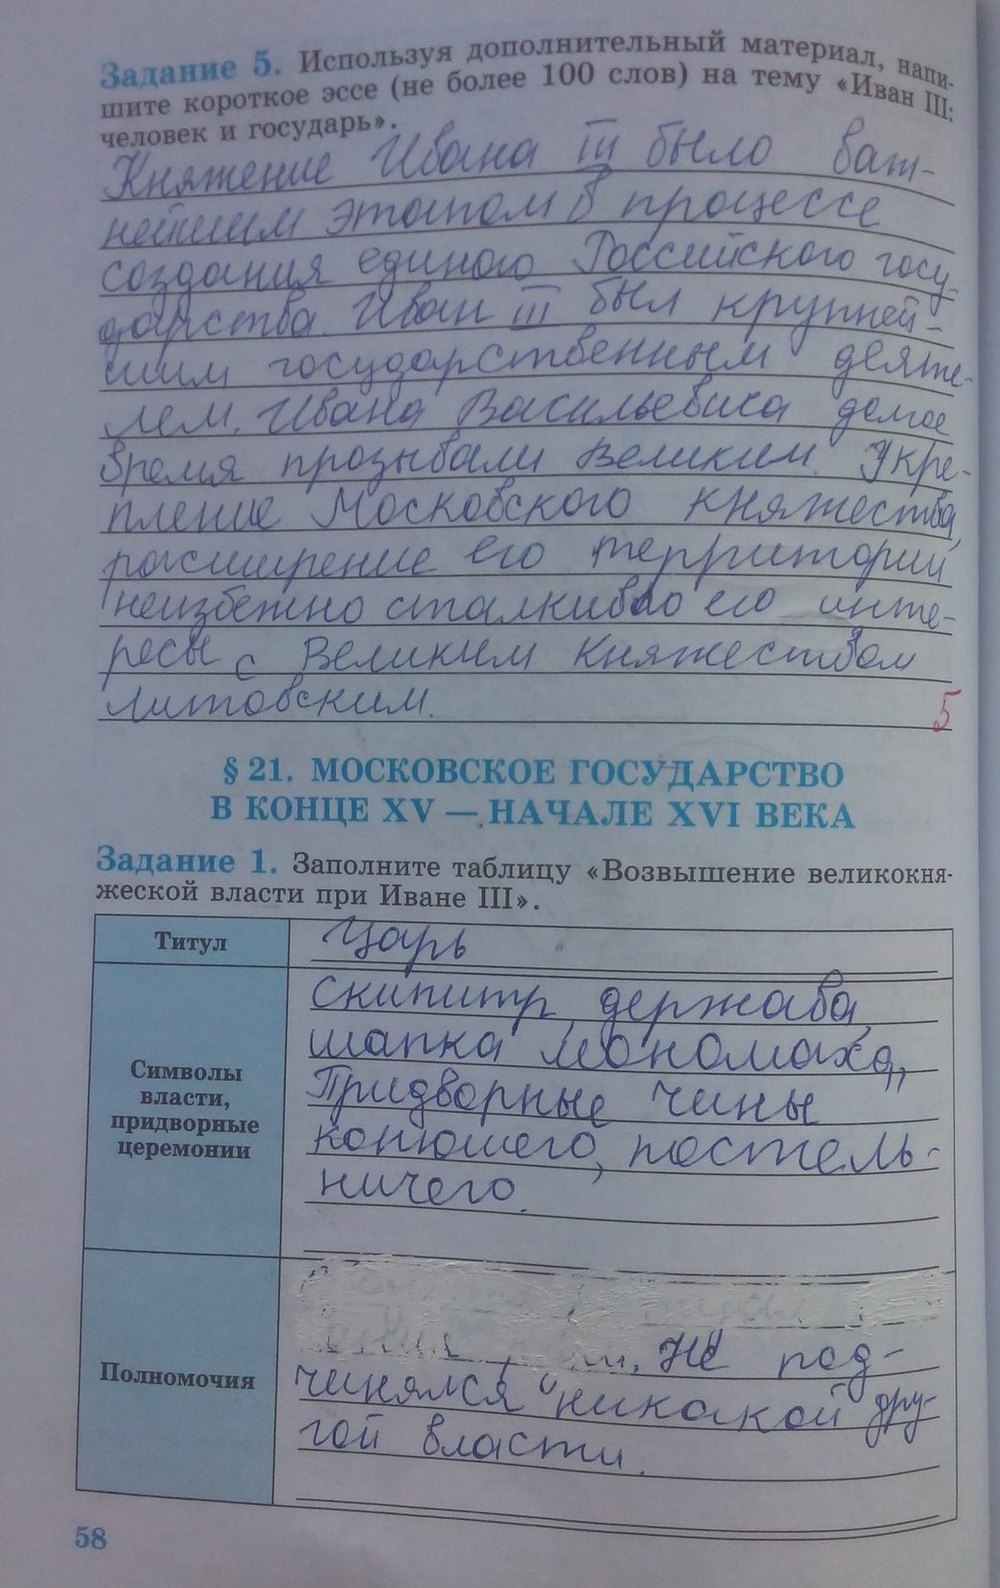 Задание 5. Используя дополнительный материал, напи-
шите короткое эссе (не более 100 слов) на тему «Иван III:
человек и государь».
Княжение Ивана III было важ-
нейшим этапом в процессе
создания единого Российского госу-
дарства. Иван III был крупней-
шим государственным деяте-
лем. Ивана Васильевича долгое
время прозывали Великим. Укре-
пление Московского княжества,
расширение его территории
неизбежно сталкивало его инте-
ресы с Великим княжеством
Литовским.
5
§ 21. МОСКОВСКОЕ ГОСУДАРСТВО
В КОНЦЕ XV — НАЧАЛЕ XVI ВЕКА
Задание 1. Заполните таблицу «Возвышение великокня-
жеской власти при Иване III».
Титул
Царь
Символы
власти,
придворные
церемонии
Скипитр, держава,
шапка Мономаха,
Придворные чины
конюшего, постель-
ничего.
Полномочия
Не под-
чинялся никакой дру-
гой власти.
58